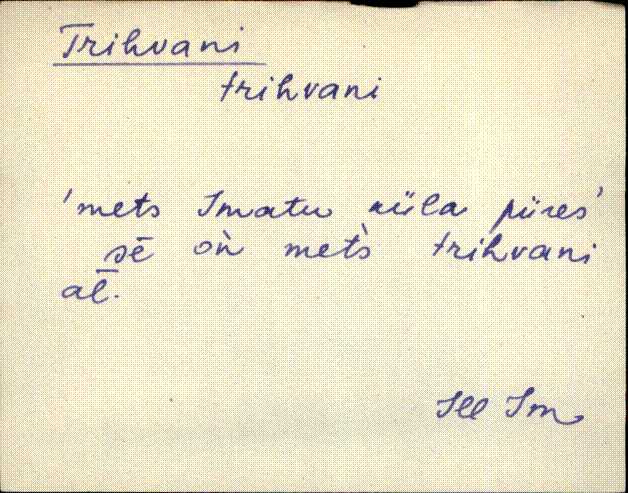 Trihvani
trihvani
'mets Imatu küla piires'
sē òǹ met̀s trihvani
al̄.
Ill Im